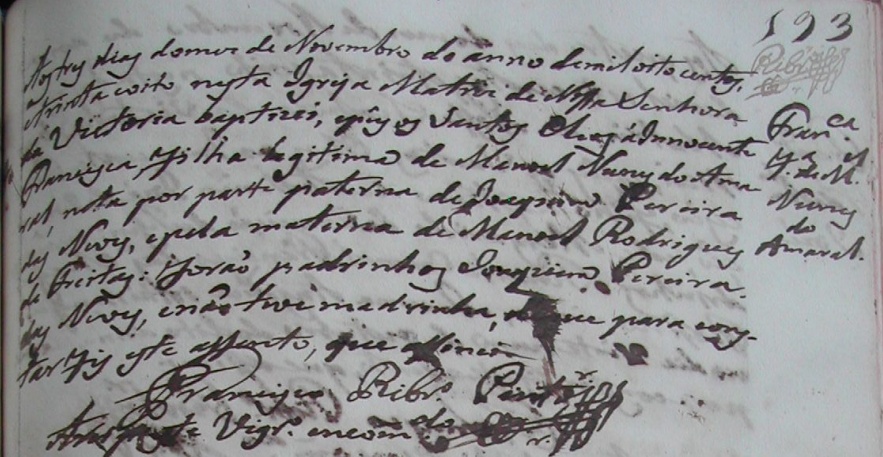 193
Ribr.o
Aos tres dias do mes de Novembro do anno de mil oito centos,
e trinta e oito nesta Igreja Matriz de Nossa Senhora
da Victoria baptizei, e puz os Santos Oleos á Innocente
Francisca, filha legitima de Manoel Nunes do Ama
ral, neta por parte paterna de Joaquim Pereira
das Neves, e pela materna de Manoel Rodrigues
de Freitas: forão padrinhos Joaquim Pereira
das Neves, e não teve madrinha, do que para cons-
tar fiz este assento, que assinei
Francisco Ribr.o Pinto
Vigr.o encom.do
Fran.ca
f.a de M.el
Nunes
do
Amaral.